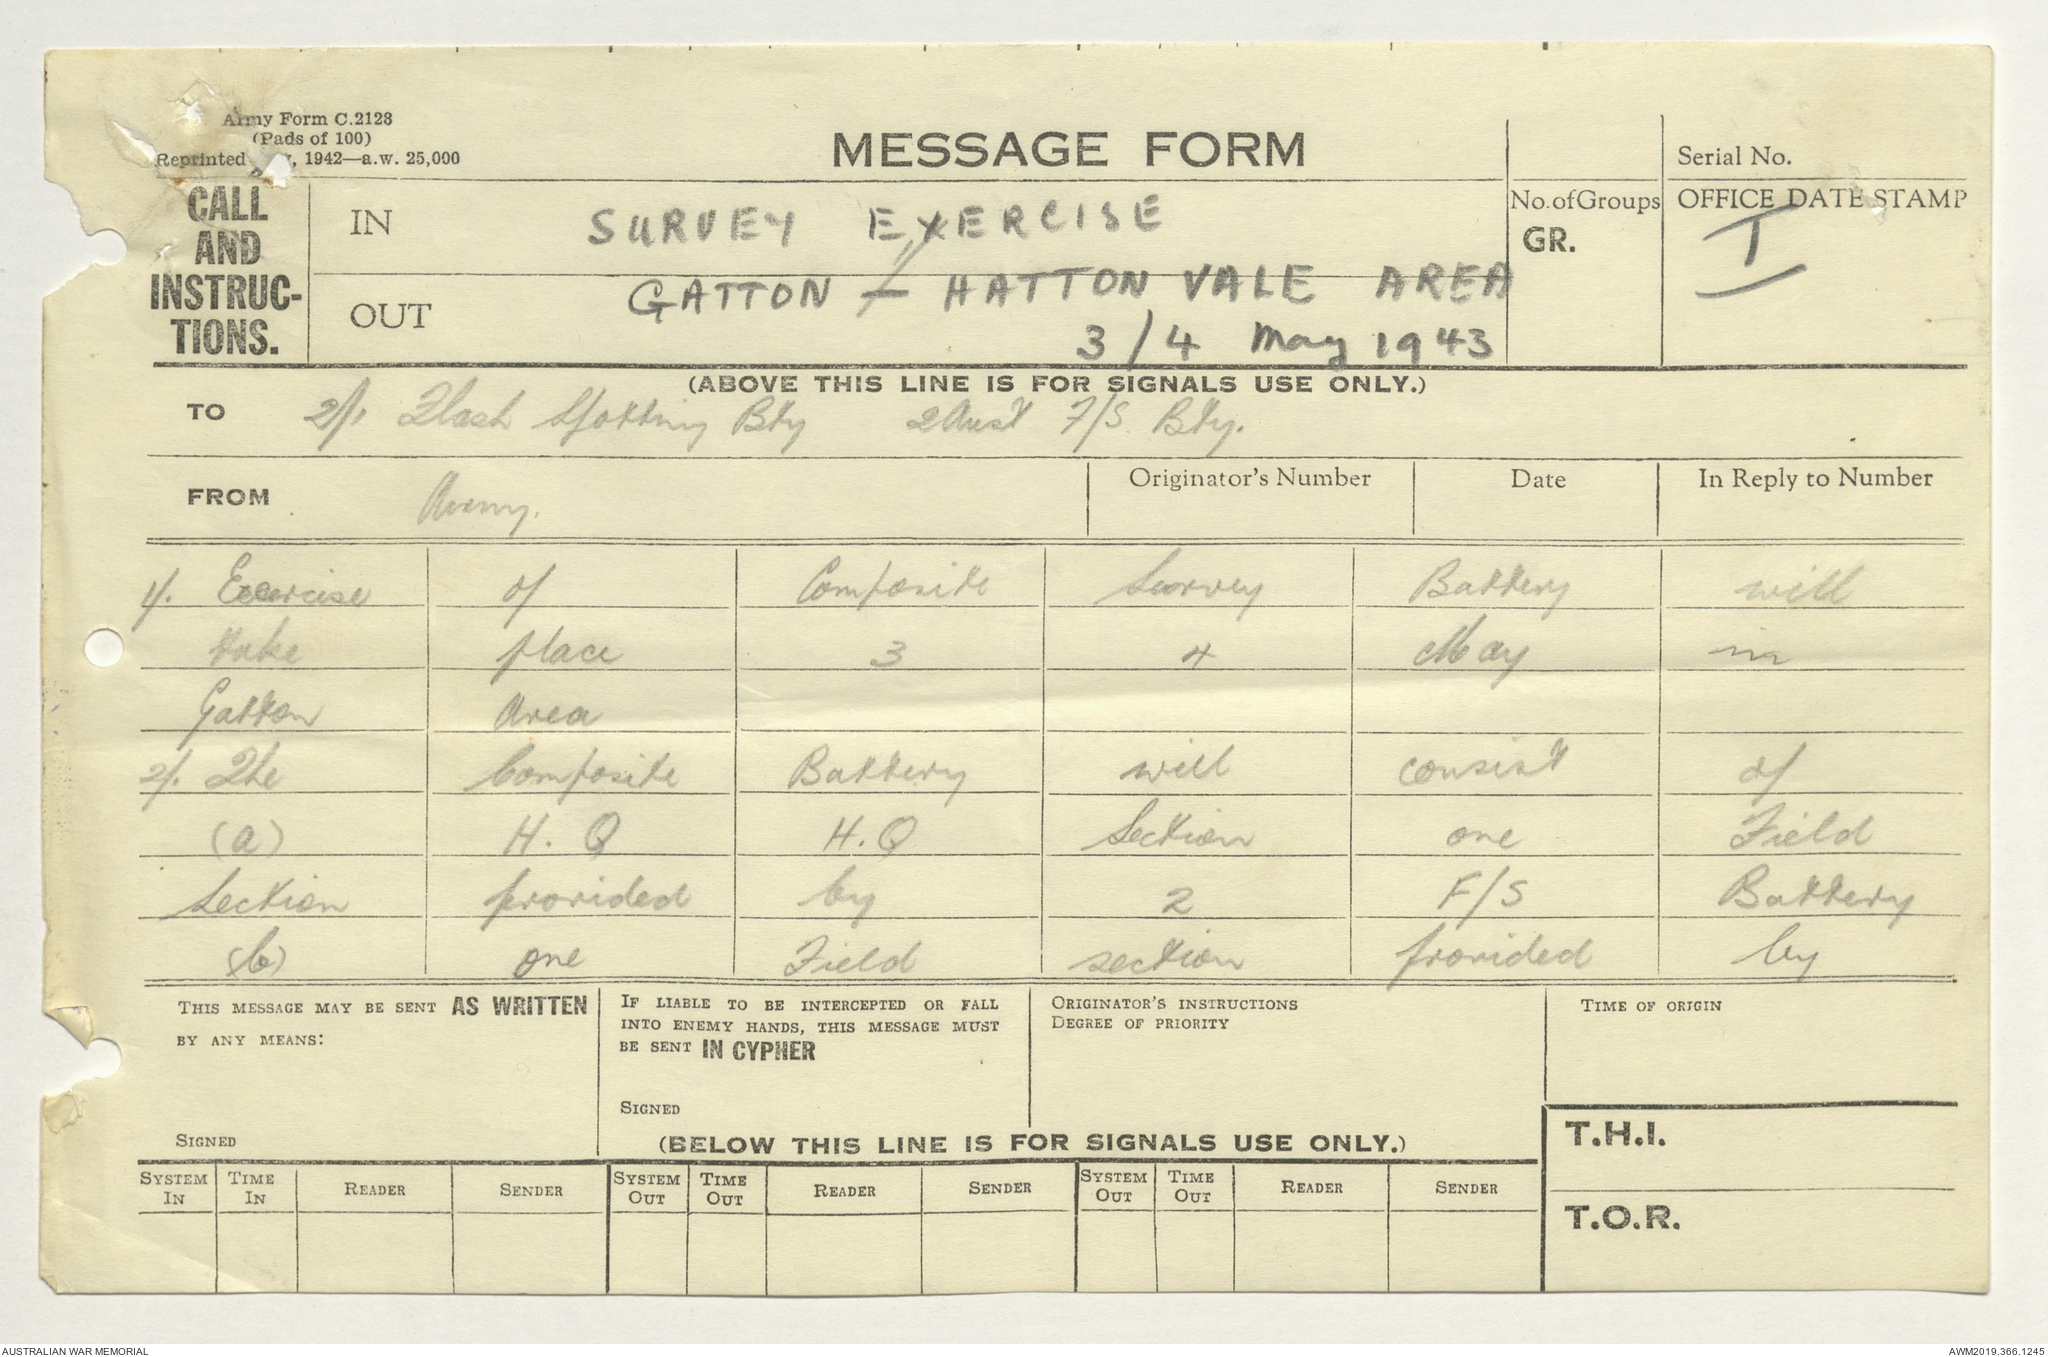 Army Form C.2128
(Pads of 100)
Reprinted , 1942—a.w. 25,000
MESSAGE FORM
Serial No.
CALL AND INSTRUC-TIONS.
IN
SURVEY EXERCISE
No. of Groups
GR.
OFFICE DATE STAMP
I
OUT
GATTON - HATTON VALE AREA
3/4 May 1943
(ABOVE THIS LINE IS FOR SIGNALS USE ONLY.)
TO 2/1 Flash Spotting Bty 2 Aust F/S Bty.
FROM Army.
Originator's Number
Date
In Reply to Number
1/. Exercise of Composite Survey Battery will
take place 3 4 May in
Gatton Area
2/. The Composite Battery will consist of
(a) H.Q H.Q Section one Field
Section provided by 2 F/S Battery
(b) one Field section provided by
THIS MESSAGE MAY BE SENT AS WRITTEN
BY ANY MEANS:
SIGNED
IF LIABLE TO BE INTERCEPTED OR FALL
INTO ENEMY HANDS, THIS MESSAGE MUST
BE SENT IN CYPHER
SIGNED
ORIGINATOR'S INSTRUCTIONS
DEGREE OF PRIORITY
TIME OF ORIGIN
(BELOW THIS LINE IS FOR SIGNALS USE ONLY.)
T.H.I.
T.O.R.
SYSTEM IN TIME IN READER SENDER SYSTEM OUT TIME OUT READER SENDER SYSTEM OUT TIME OUT READER SENDER
AUSTRALIAN WAR MEMORIAL
AWM2019.366.1245